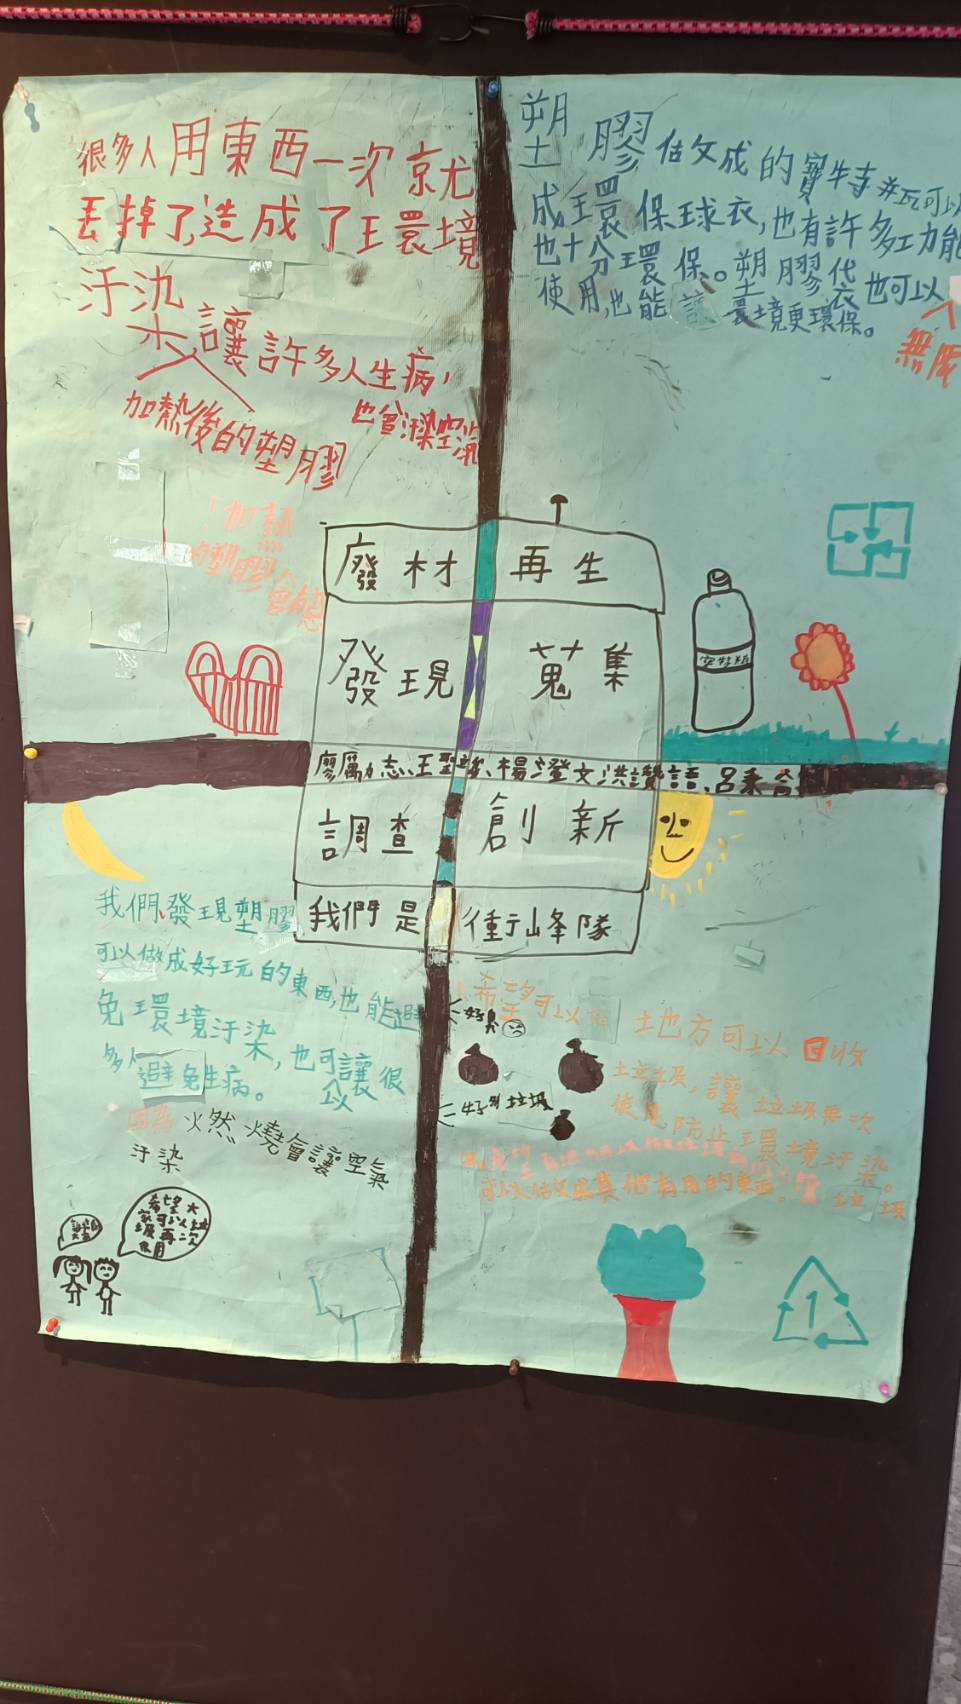 很多人用東西一次就
丟掉了,造成了環境
汙染讓許多人生病,
也會汙染空氣
加熱後的塑膠
!加熱
的塑膠會
塑膠做成的寶特瓶可以
成環保球衣,也有許多功能
也十分環保。塑膠袋也可以
使用,也能讓環境更環保。
無限
廢材再生
發現 蒐集
調查 創新
我們是衝山峰隊
我們發現塑膠
可以做成好玩的東西,也能避
免環境汙染,也可以讓很
多人避免生病。
因為火然燒會讓空氣
汙染
希望大
家可以垃
圾再次
使用
1.希望可以 地方可以回收
垃圾,讓垃圾再次
使用防止環境汙染。
好臭
好多垃圾
2.希望
可以做成其他有用的東西。
垃圾
1